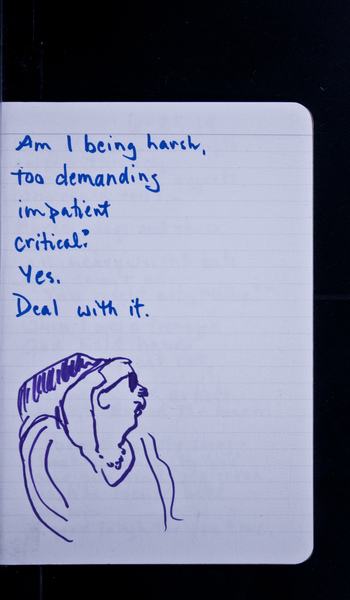 Am I being harsh,
too demanding
impatient
critical?
Yes.
Deal with it.